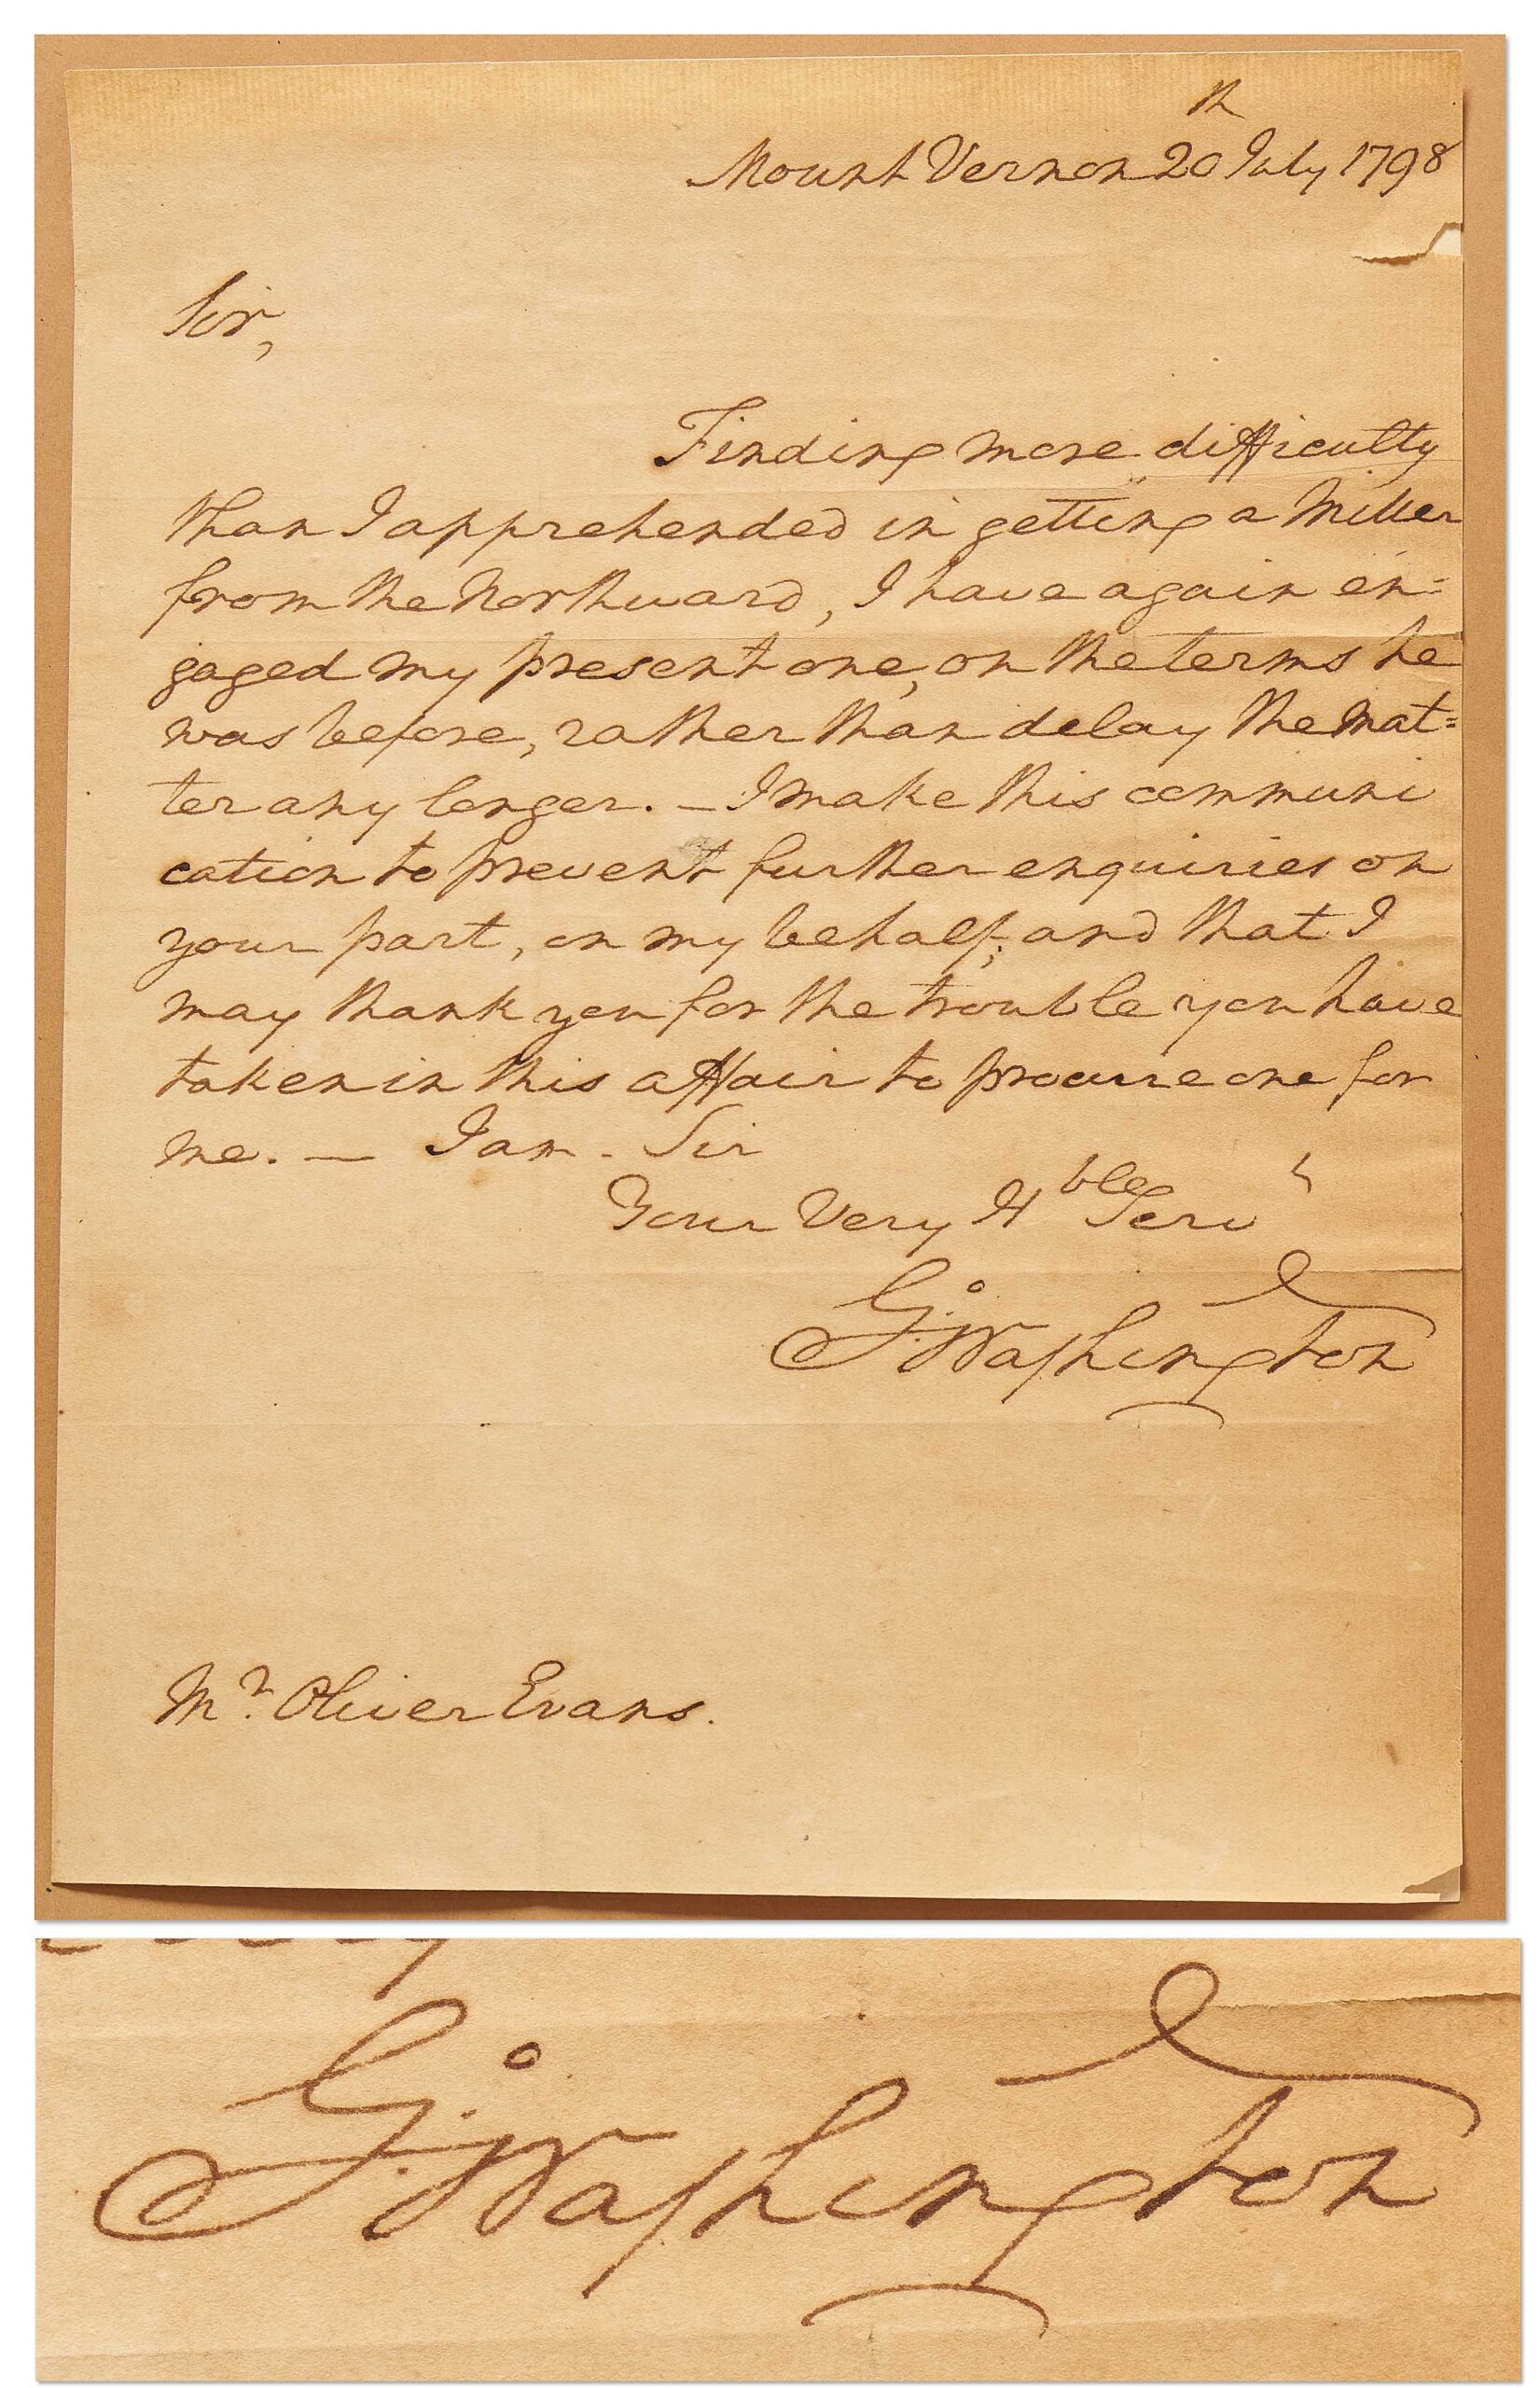 Mount Vernon 20th July 1798
Sir,
Finding more difficulty
than I apprehended in getting a Miller
from the Northward, I have again en=
gaged my present one, on the terms he
was before, rather than delay the mat=
ter any longer. — I make this communi
cation to prevent further enquiries on
your part, on my behalf; and that I
may thank you for the trouble you have
taken in this affair to procure one for
me. — I am - Sir
Your Very Hble Servt
Go: Washington
Mr. Oliver Evans.
Go: Washington